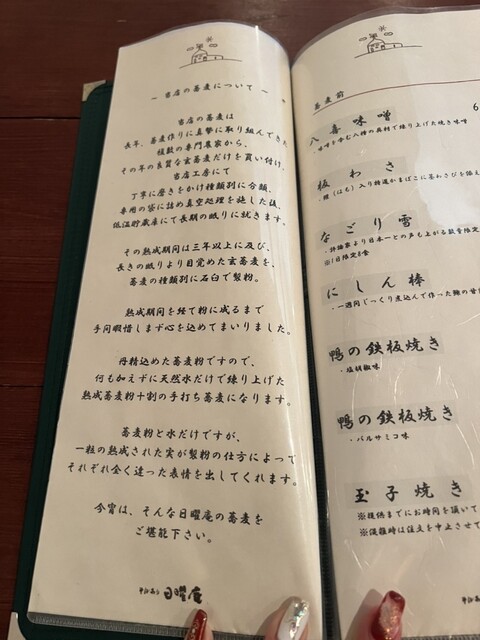 ～ 当店の蕎麦について ～
当店の蕎麦は
長年、蕎麦作りに真摯に取り組んできた
複数の専門農家から、
その年の良質な玄蕎麦だけを買い付け、
当店工房にて
丁寧に磨きをかけ種類別に分類、
専用の袋に詰め真空処理を施した後、
低温貯蔵庫にて長期の眠りに就きます。
その熟成期間は三年以上に及び、
長きの眠りより目覚めた玄蕎麦を、
蕎麦の種類別に石臼で製粉。
熟成期間を経て粉に成るまで
手間暇惜しまず心を込めてまいりました。
丹精込めた蕎麦粉ですので、
何も加えずに天然水だけで練り上げた
熟成蕎麦粉十割の手打ち蕎麦になります。
蕎麦粉と水だけですが、
一粒の熟成された実が製粉の仕方によって
それぞれ全く違った表情を出してくれます。
今宵は、そんな日曜庵の蕎麦を
ご堪能下さい。
日曜庵
蕎麦前
6
八喜味噌
板わさ
・鱧（はも）入り特選かまぼこに茎わさびを添え
なごり雪
・評論家より日本一との声も上がる数量限定
※1日限定8食
にしん棒
・一週間じっくり煮込んで作った鰊の甘
鴨の鉄板焼き
・塩胡椒味
鴨の鉄板焼き
・バルサミコ味
玉子焼き
※提供までにお時間を頂いて
※混雑時は注文を中止させて